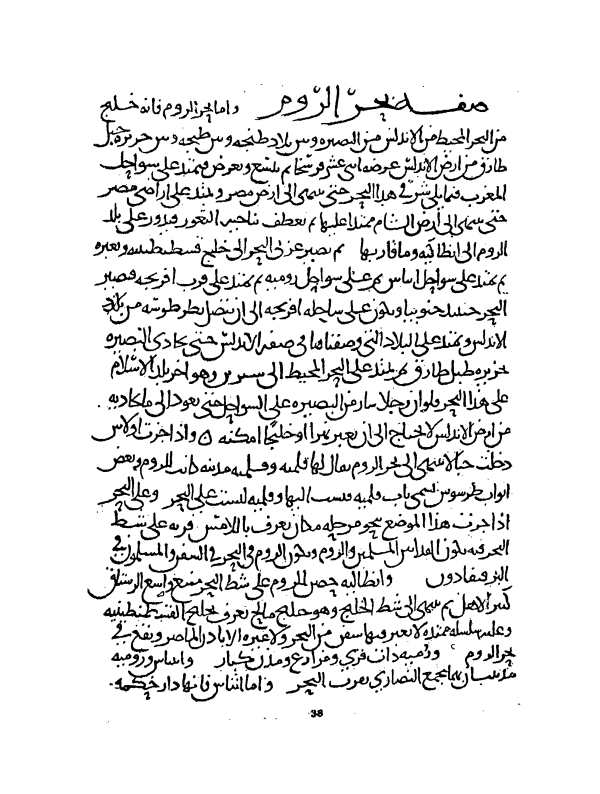 صفة بحر الروم واما بحر الروم فانه خليج
من البحر المحيط من الاندلس من البصيره وبين بلاد طنجه وبين طنجه وبين جزيره جبل
طارق من ارض الاندلس عرضه اثنى عشر فرسخا ثم يتسع ويعرض فيمتد على سواحل
المغرب فما يلى شرقى هذا البحر حتى ينتهى الى ارض مصر ويمتد على اراضى مصر
حتى ينتهى الى أرض الشام ممتدا عليها ثم يعطف ناحيه الثغور فيدور على بلد
الروم الى انطاكيه وما قاربها ثم يصير غربى البحر الى خليج قسطنطينيه ويعبره
ثم يمتد على سواحل اثيناس ثم على سواحل روميه ثم يمتد على قرب افرنجه فيصير
البحر حينئذ جنوبيا ويكون على ساحله افرنجه الى ان يتصل بطرطوشه من بلاد
الاندلس ويمتد على البلاد التى وصفناها فى صفه الاندلس حتى يحاذى البصيره
جزيره جبل طارق ثم يمتد على البحر المحيط الى شنترين وهو اخر بلد الاسلام
على هذا البحر فلو ان رجلا سار من البصيره على السواحل حتى يعود الى ما يحاذيه
من ارض الاندلس لا يحتاج الى ان يعبر نهرا او خليجا امكنه واذا جزت اولاس
دخلت جبالا تنتهى الى بحر الروم يقال لها قلميه وقلميه مدينه كانت للروم وبعض
ابواب طرسوس يسمى باب قلميه فينسب اليها وقلميه ليست على البحر وعلى البحر
اذا جزت هذا الموضع بنحو مرحله مكان يعرف باللامس قريه على شط
البحر فيه يكون الفدا بين المسلمين والروم ويكون الروم فى البحر فى السفن والمسلمون فى
البر فيفادون وانطاليه حصن للروم على شط البحر منيع واسع الرستاق
كثير الاهل ثم ينتهى الى شط الخليج وهو خليج مالح يعرف بخليج القسطنطينيه
وعليه سلسله ممتده لا يعبر فيها سفن من البحر ولا غيره الا باذن الماصر ويقع فى
بحر الروم وروميه ذات قرى ومزارع ومدن كبار واثيناس وروميه
مدينتان بها مجمع النصارى بقرب البحر واما اثيناس فانها دار حكمه.
38